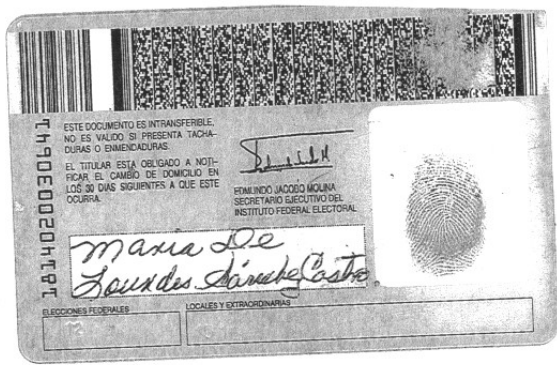 ESTE DOCUMENTO ES INTRANSFERIBLE,
NO ES VALIDO SI PRESENTA TACHA-
DURAS O ENMENDADURAS.
EL TITULAR ESTÁ OBLIGADO A NOTI-
FICAR EL CAMBIO DE DOMICILIO EN
LOS 30 DIAS SIGUIENTES A QUE ESTE
OCURRA.
EDMUNDO JACOBO MOLINA
SECRETARIO EJECUTIVO DEL
INSTITUTO FEDERAL ELECTORAL
1490300204181
Maria De
Lourdes Sánchez Castro
ELECCIONES FEDERALES
LOCALES Y EXTRAORDINARIAS